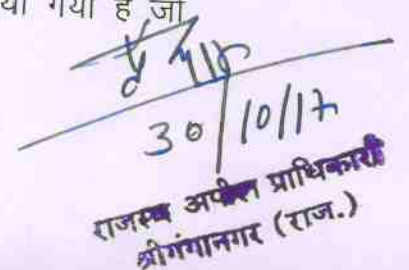 गया है जो
30/10/17
राजस्व अपील प्राधिकारी
श्रीगंगानगर (राज.)